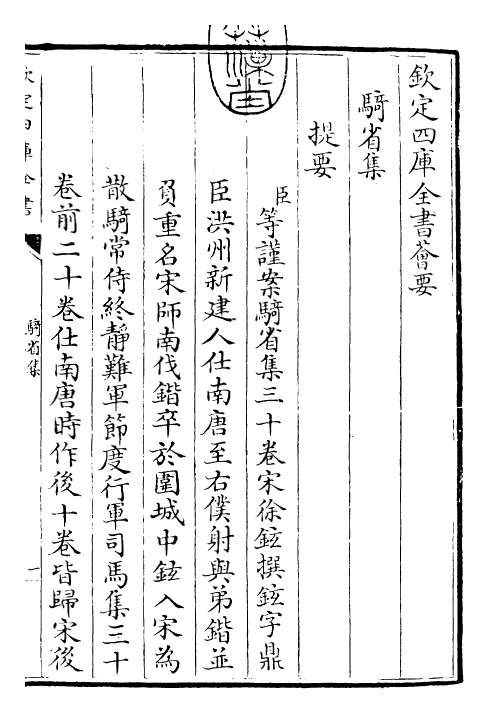 欽定四庫全書薈要
騎省集
提要
臣等謹案騎省集三十卷宋徐鉉撰鉉字鼎
臣洪州新建人仕南唐至右僕射與弟鍇並
負重名宋師南伐鍇卒於圍城中鉉入宋為
散騎常侍終靜難軍節度行軍司馬集三十
卷前二十卷仕南唐時作後十卷皆歸宋後
欽定四庫全書
騎省集
一